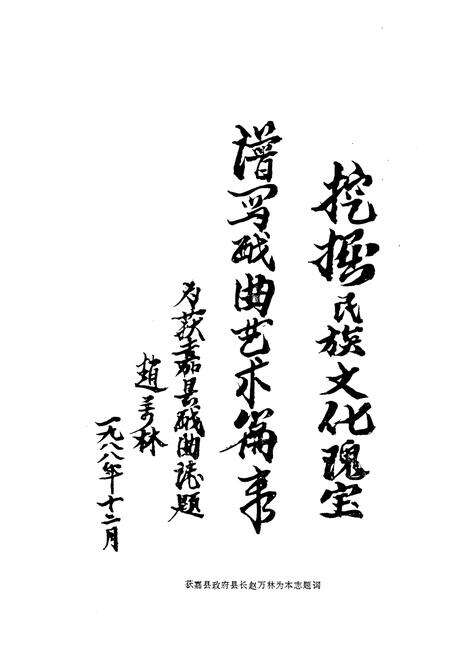 挖掘民族文化瑰宝
谱写戏曲艺术篇章
为获嘉县戏曲志题
趙万林
一九八八年十二月
获嘉县政府县长赵万林为本志题词